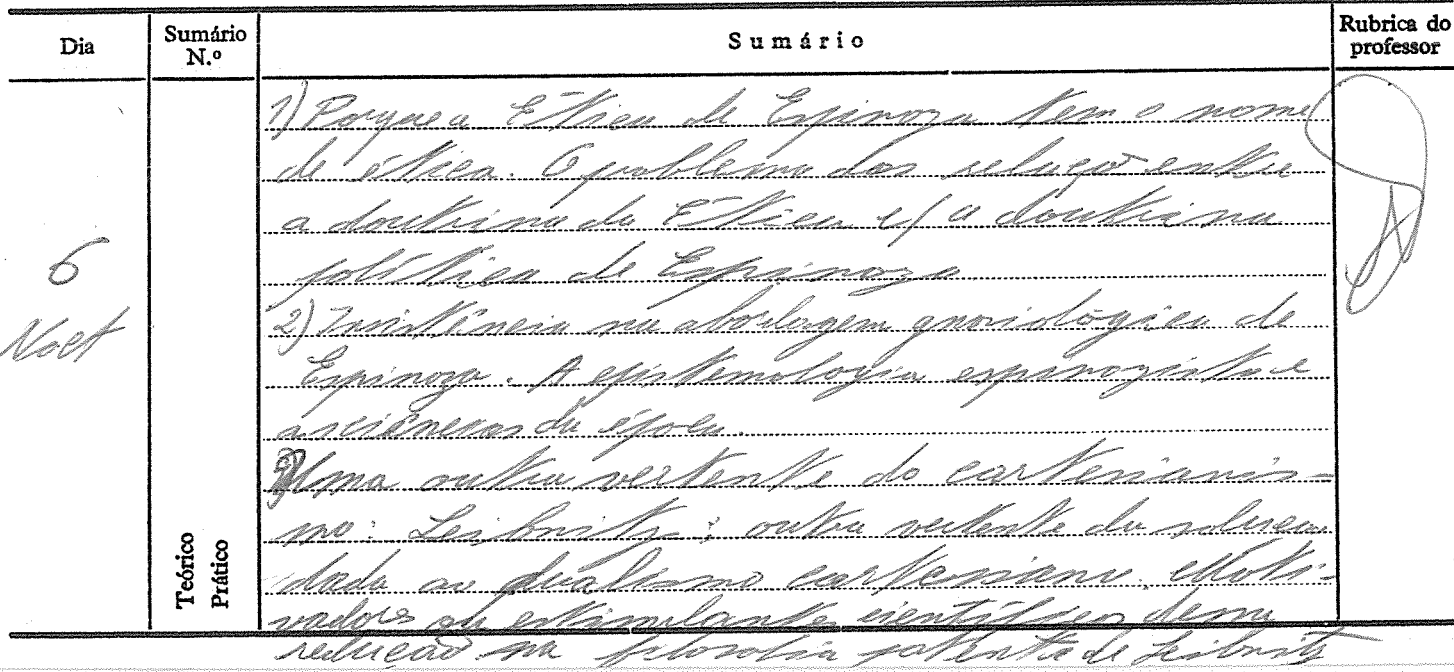 Dia
Sumário N.º
Sumário
Rubrica do professor
6
Teórico
Prático
1) Porque a Ética de Espinoza tem o nome
de ética. O problema das relações entre
a doutrina da Ética e/ a doutrina
política de Espinoza
2) Insistência na abordagem gnosiológica de
Espinoza. A epistemologia espinozista e
as ciências da época.
3) Uma outra vertente do cartesianis-
mo: Leibnitz; outra vertente da solução
dada ao dualismo cartesiano. Moti-
vadores ou estimulantes científicos
redução na filosofia de Leibnitz